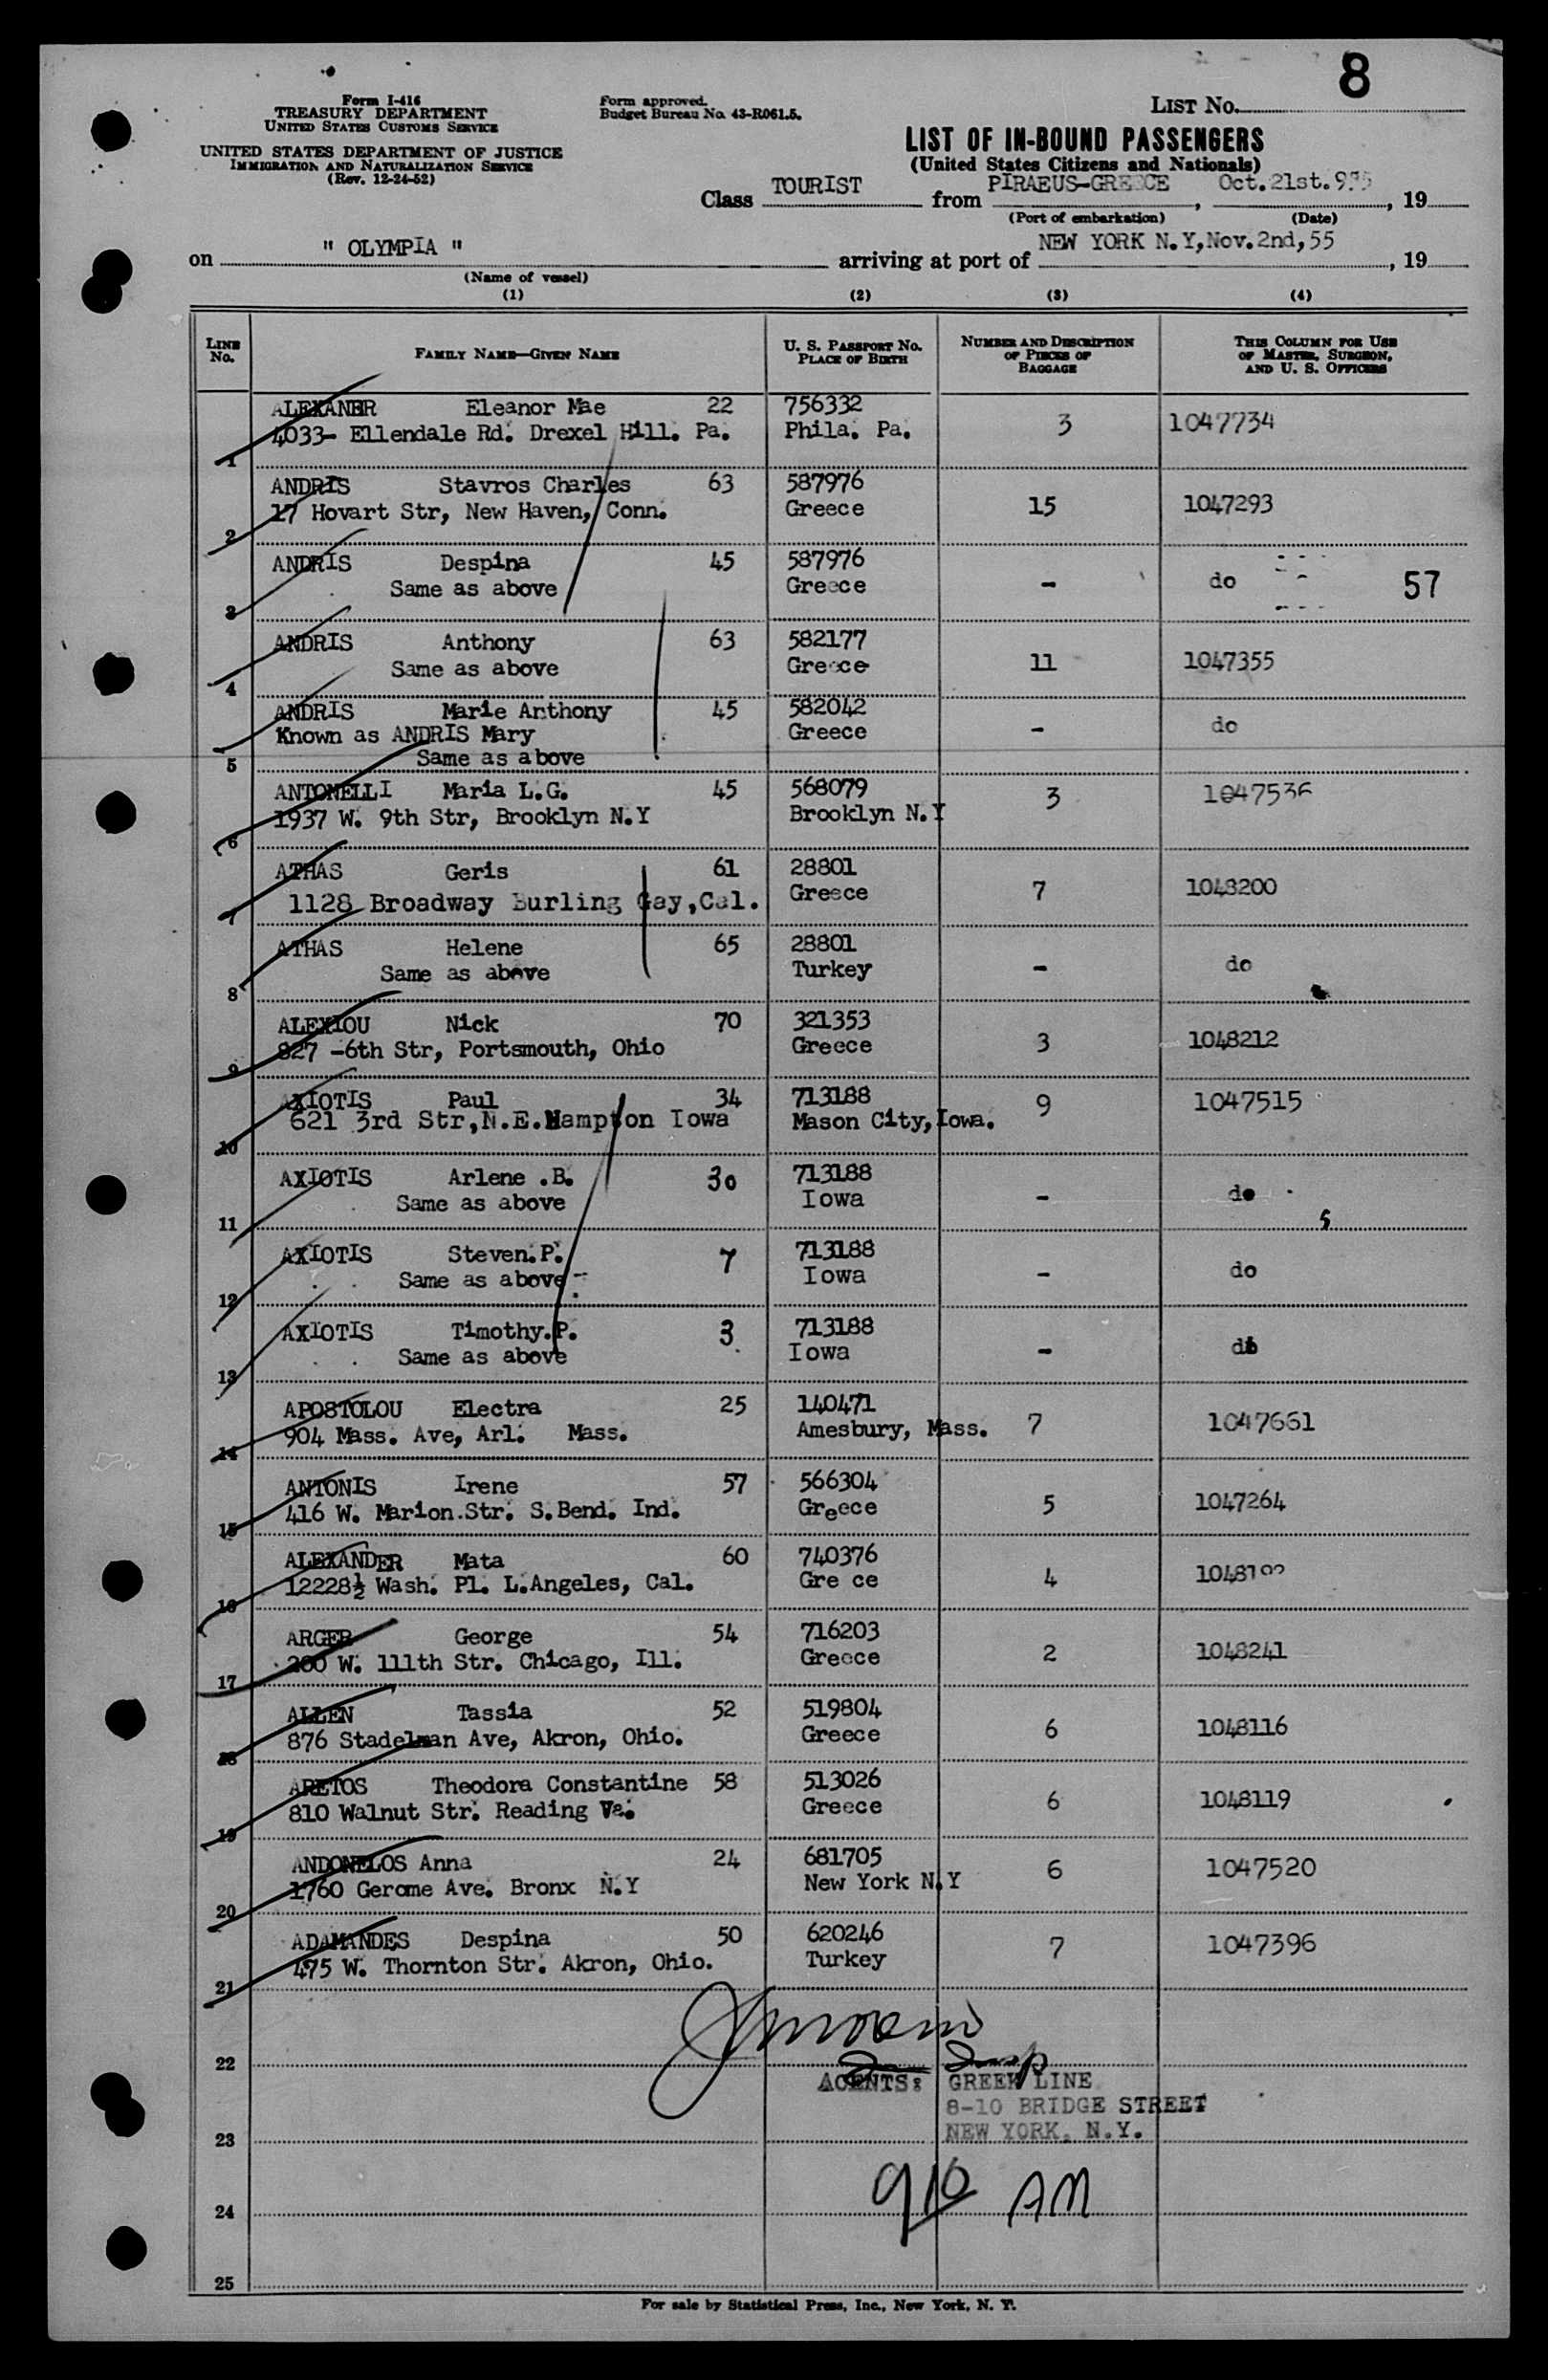 8
Form I-416
TREASURY DEPARTMENT
UNITED STATES CUSTOMS SERVICE
UNITED STATES DEPARTMENT OF JUSTICE
IMMIGRATION AND NATURALIZATION SERVICE
(Rev. 12-24-52)
Form approved.
Budget Bureau No. 43-R061.5.
LIST No.
LIST OF IN-BOUND PASSENGERS
(United States Citizens and Nationals)
Class TOURIST from PIRAEUS-GREECE, Oct.21st.955, 19
(Port of embarkation) (Date)
on " OLYMPIA " arriving at port of NEW YORK N.Y, Nov.2nd,55, 19
(Name of vessel)
(1) (2) (3) (4)
LINE No. FAMILY NAME—GIVEN NAME U. S. PASSPORT No. PLACE OF BIRTH NUMBER AND DESCRIPTION OF PIECES OF BAGGAGE THIS COLUMN FOR USE OF MASTER, SURGEON, AND U. S. OFFICERS
ALEXANER Eleanor Mae 22 756332
4033- Ellendale Rd. Drexel Hill. Pa. Phila. Pa. 3 1047734
1
ANDRIS Stavros Charles 63 587976
17 Hovart Str, New Haven, Conn. Greece 15 1047293
2
ANDRIS Despina 45 587976
Same as above Greece - do 57
3
ANDRIS Anthony 63 582177
Same as above Greece 11 1047355
4
ANDRIS Marie Anthony 45 582042
Known as ANDRIS Mary Greece - do
Same as above
5
ANTONELLI Maria L.G. 45 568079
1937 W. 9th Str, Brooklyn N.Y Brooklyn N.Y 3 1047536
6
ATHAS Geris 61 28801
1128 Broadway Burling Gay,Cal. Greece 7 1048200
7
ATHAS Helene 65 28801
Same as above Turkey - do
8
ALEXIOU Nick 70 321353
827 -6th Str, Portsmouth, Ohio Greece 3 1048212
9
AXIOTIS Paul 34 713188
621 3rd Str,N.E.Hampton Iowa Mason City,Iowa. 9 1047515
10
AXIOTIS Arlene .B. 30 713188
Same as above Iowa - do
11
AXIOTIS Steven.P. 7 713188
Same as above Iowa - do
12
AXIOTIS Timothy.P. 3 713188
Same as above Iowa - do
13
APOSTOLOU Electra 25 140471
904 Mass. Ave, Arl. Mass. Amesbury, Mass. 7 1047661
14
ANTONIS Irene 57 566304
416 W. Marion.Str. S.Bend. Ind. Greece 5 1047264
15
ALEXANDER Mata 60 740376
12228½ Wash. Pl. L.Angeles, Cal. Gre ce 4
16
ARGER George 54 716203
200 W. 111th Str. Chicago, Ill. Greece 2 1048241
17
ALLEN Tassia 52 519804
876 Stadelman Ave, Akron, Ohio. Greece 6 1048116
18
ARETOS Theodora Constantine 58 513026
810 Walnut Str. Reading Greece 6 1048119
19
ANDONELOS Anna 24 681705
1760 Gerome Ave. Bronx N.Y New York N.Y 6 1047520
20
ADAMANDES Despina 50 620246
475 W. Thornton Str. Akron, Ohio. Turkey 7 1047396
21
22
AGENTS: GREEK LINE
8-10 BRIDGE STREET
23 NEW YORK, N.Y.
910 AM
24
25
For sale by Statistical Press, Inc., New York, N. Y.